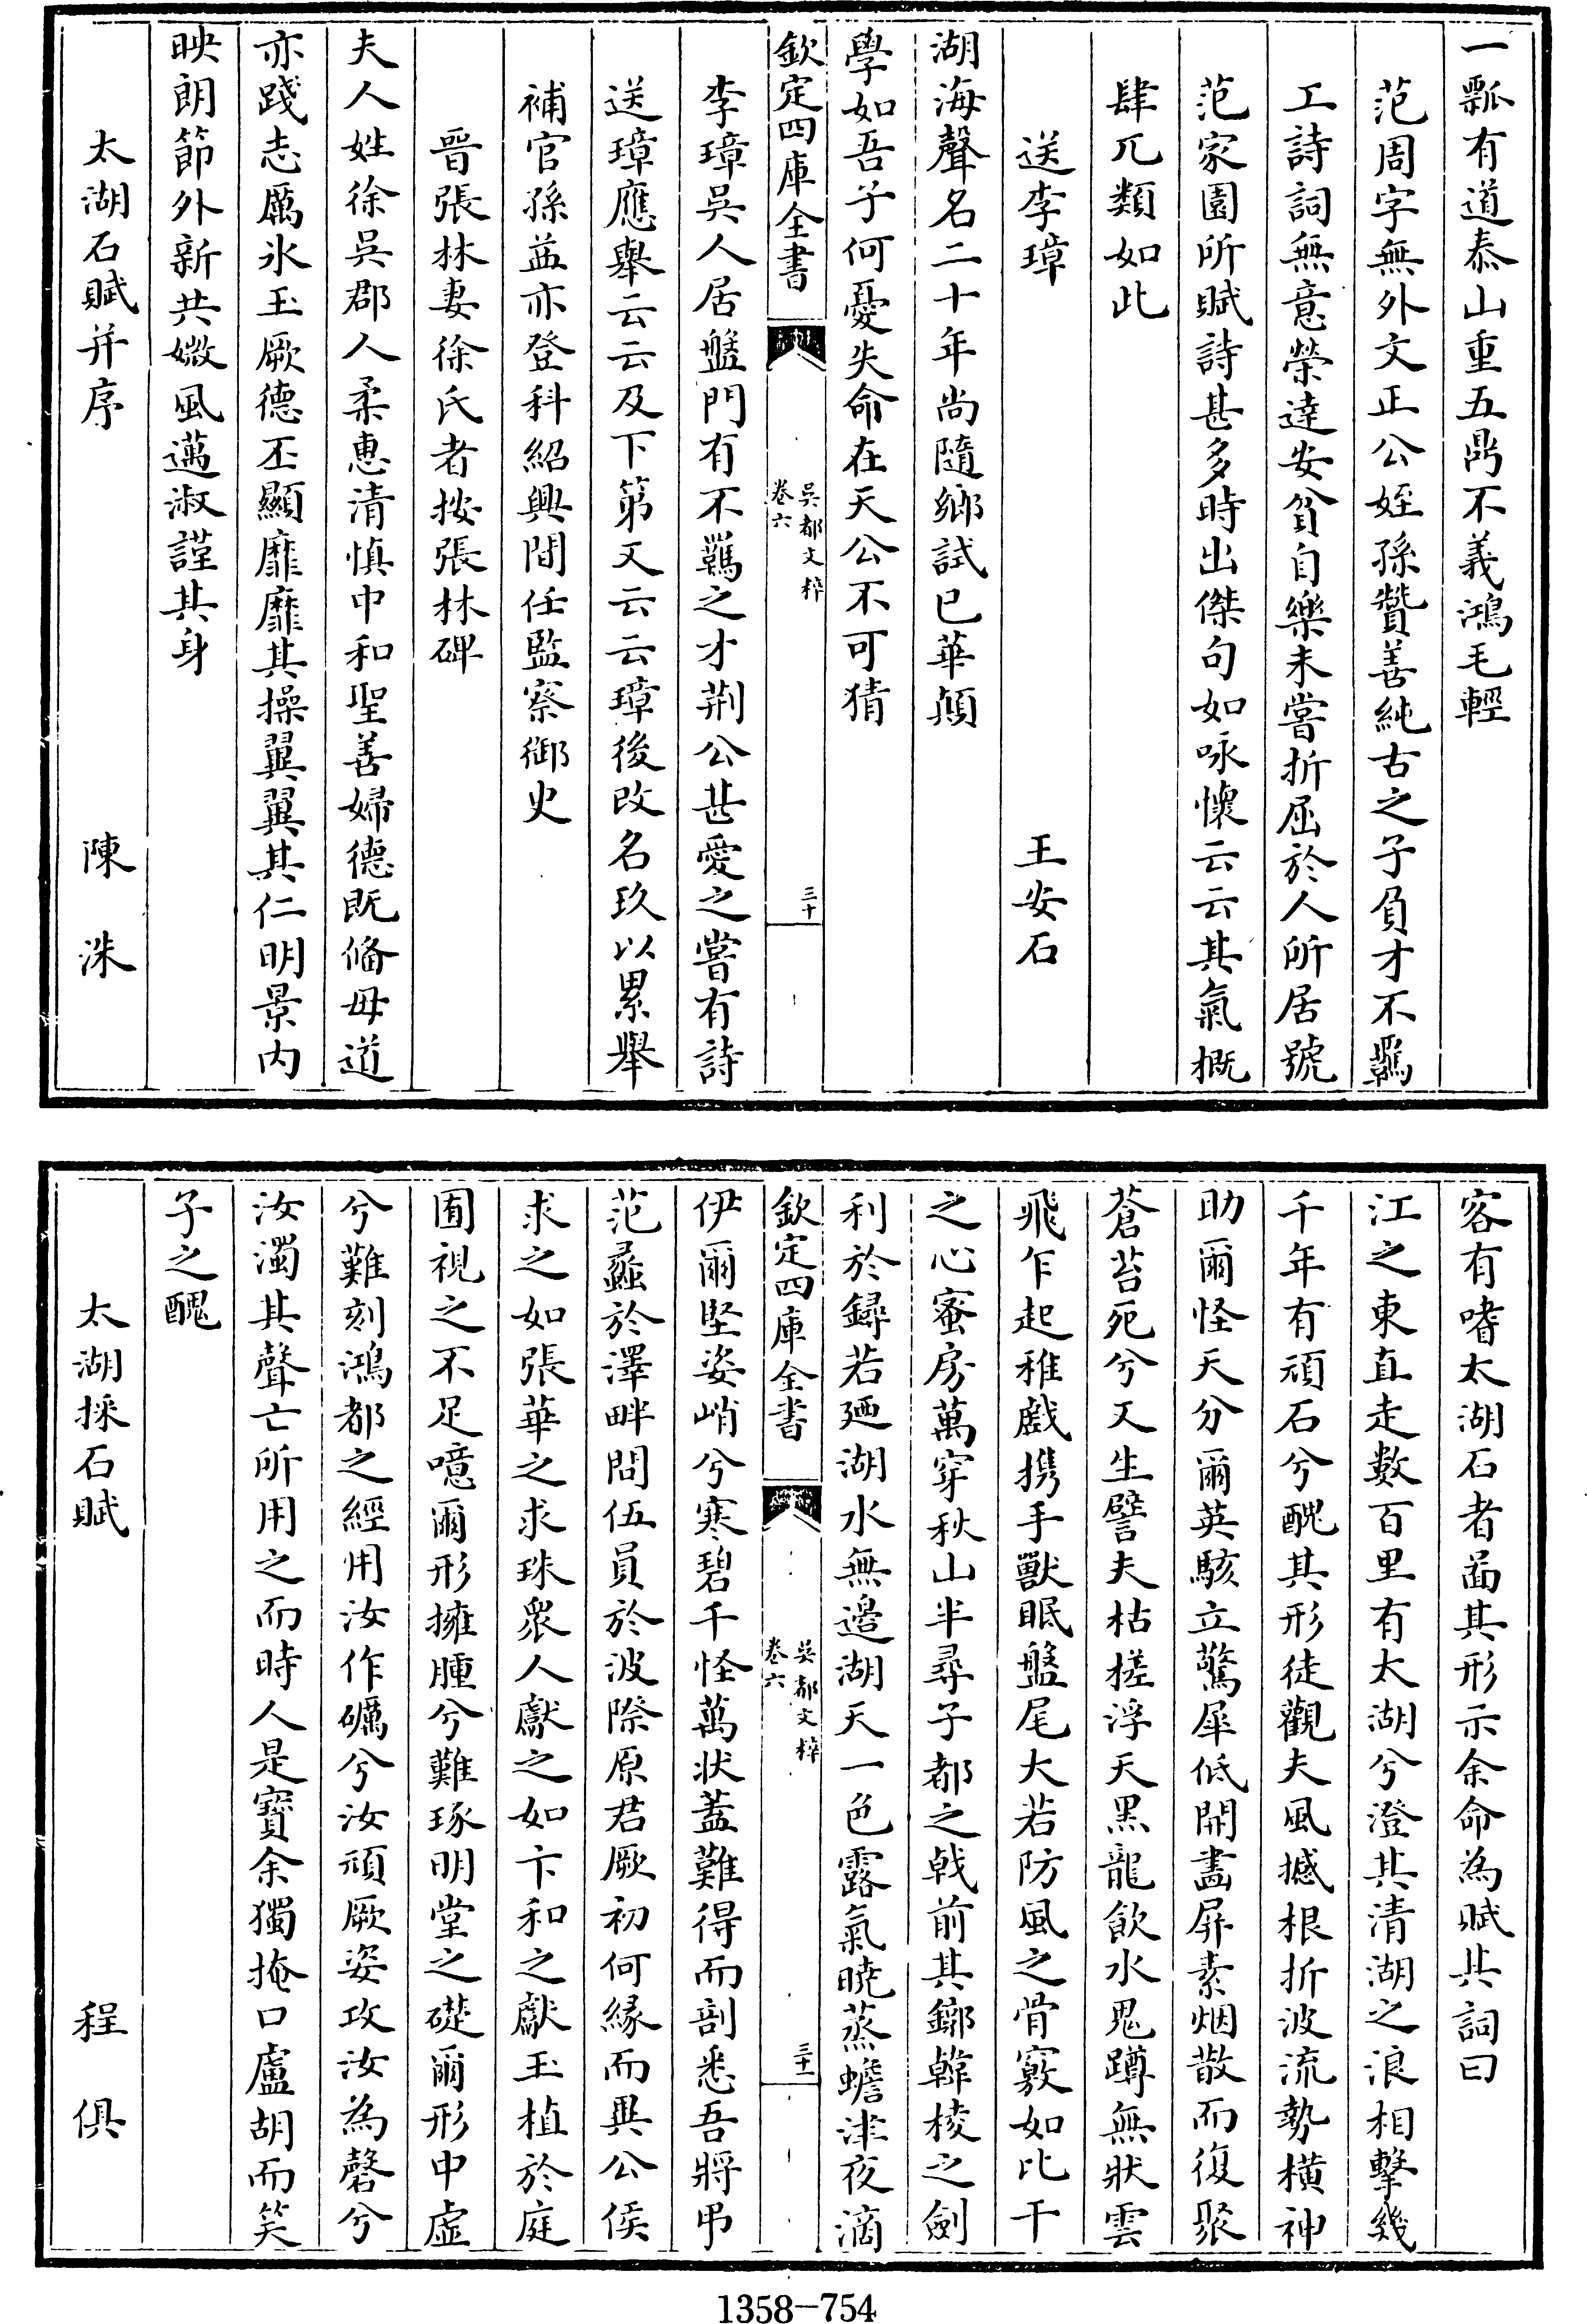 一瓢有道泰山重五鼎不義鴻毛輕
范周字無外文正公姪孫贊善純古之子負才不羈
工詩詞無意榮達安貧自樂未嘗折屈於人所居號
范家園所賦詩甚多時出傑句如咏懷云云其氣概
肆兀類如此
送李璋 王安石
湖海聲名二十年尚隨鄉試已華顛
學如吾子何憂失命在天公不可猜
欽定四庫全書 吳都文粹 卷六 三十
李璋吳人居盤門有不羈之才荆公甚愛之嘗有詩
送璋應舉云云及下第又云云璋後改名玖以累舉
補官孫益亦登科紹興間任監察御史
晉張林妻徐氏者按張林碑
夫人姓徐吳郡人柔惠清慎中和聖善婦德既脩母道
亦踐志厲氷玉厥德丕顯靡靡其操翼翼其仁明景内
映朗節外新共媺風邁淑謹其身
太湖石賦并序 陳洙
客有嗜太湖石者啚其形示余命為賦其詞曰
江之東直走數百里有太湖兮澄其清湖之浪相擊幾
千年有頑石兮醜其形徒觀夫風撼根折波流勢橫神
助爾怪天分爾英駭立驚犀低開畫屏素烟散而復聚
蒼苔死兮又生譬夫枯槎浮天黑龍飲水鬼蹲無狀雲
飛乍起稚戲携手獸眠盤尾大若防風之骨竅如比干
之心蜜房萬穿秋山半尋子都之戟前其鎁韓棱之劍
利於鐏若廼湖水無邊湖天一色露氣曉蒸蟾津夜滴
欽定四庫全書 吳都文粹 卷六 三十一
伊爾堅姿峭兮寒碧千怪萬状蓋難得而剖悉吾將弔
范蠡於澤畔問伍員於波際原君厥初何緣而異公侯
求之如張華之求珠衆人獻之如卞和之獻玉植於庭
囿視之不足噫爾形擁腫兮難琢明堂之礎爾形中虛
兮難刻鴻都之經用汝作礪兮汝頑厥姿攻汝為磬兮
汝濁其聲亡所用之而時人是寶余獨掩口盧胡而笑
子之醜
太湖採石賦 程俱
1358－754